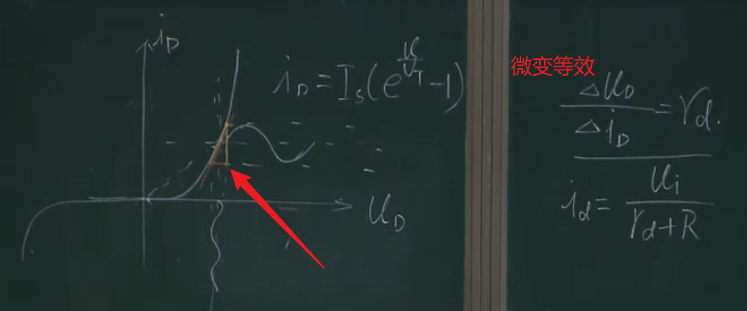 i_D
i_D = I_s(e^{u/U_T} - 1)
u_D
微变等效
Δu_D / Δi_D = r_d.
i_d = u_i / (r_d + R)